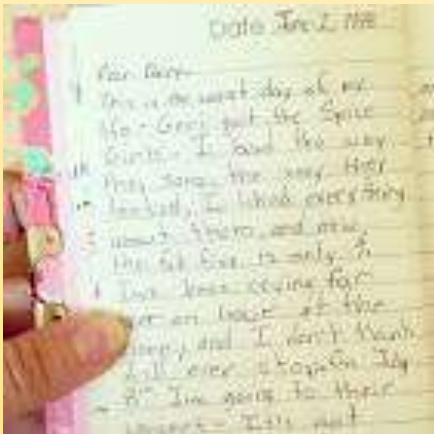 Date June 2, 1998
Dear Diary
This is the worst day of my
life - Geri quit the Spice
Girls - I loved the way
they sang, the way they
looked, I liked everything
about them, and now
the fab five is only 4
I've been crying for
over an hour at the
and I don't think
I'll ever stop. On July
I'm going to their
concert - It's not